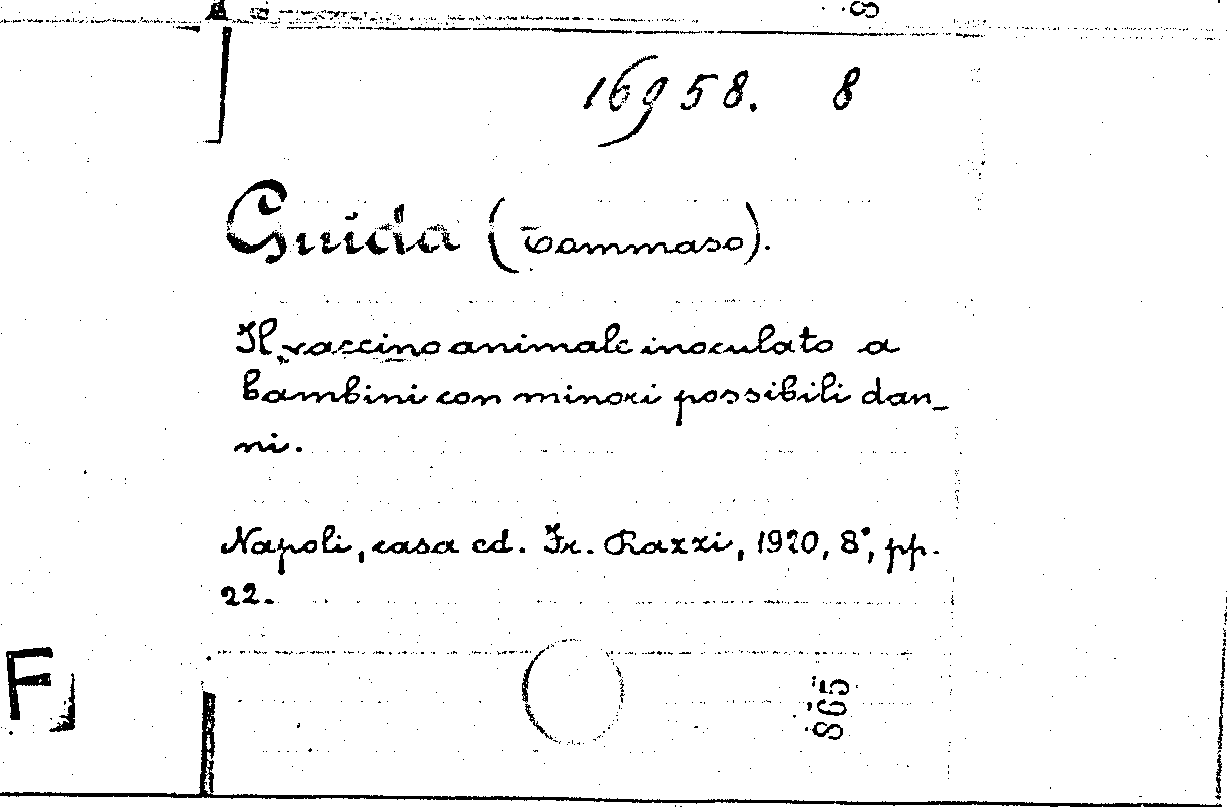 16958. 8
Guida (Tommaso).
Il vaccino animale inoculato a
bambini con minori possibili dan_
ni.
Napoli, casa ed. Fr. Razzi, 1920, 8°, pp.
22.
F
865